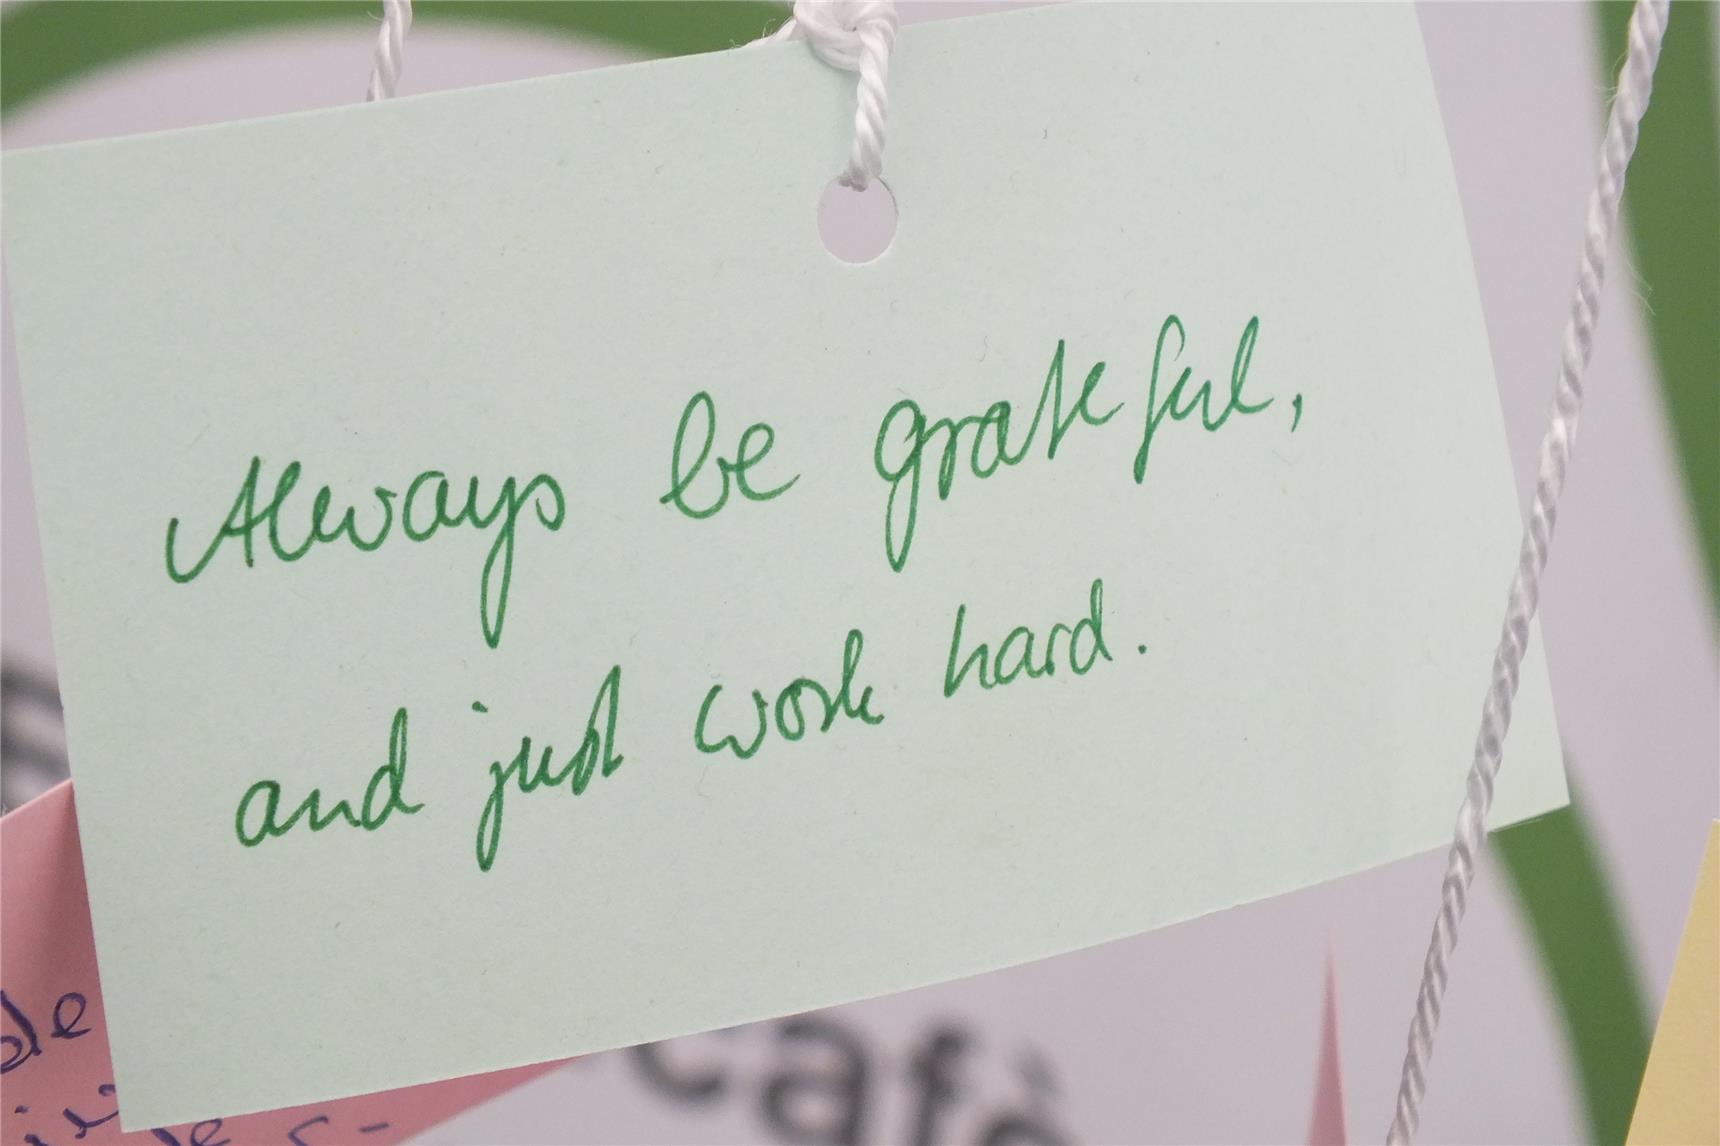 Always be grateful,
and just work hard.
de
café